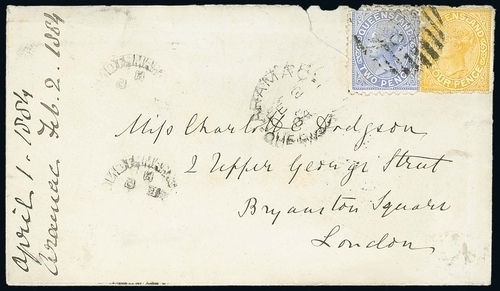 QUEENSLAND
TWO PENCE
QUEENSLAND
FOUR PENCE
ARAMAC
FE 2
84
QUEENSLAND
Miss Charlotte Hodgson
2 Upper George Street
Bryanston Square
London
April 1. 1884
Aramac Feb. 2. 1884